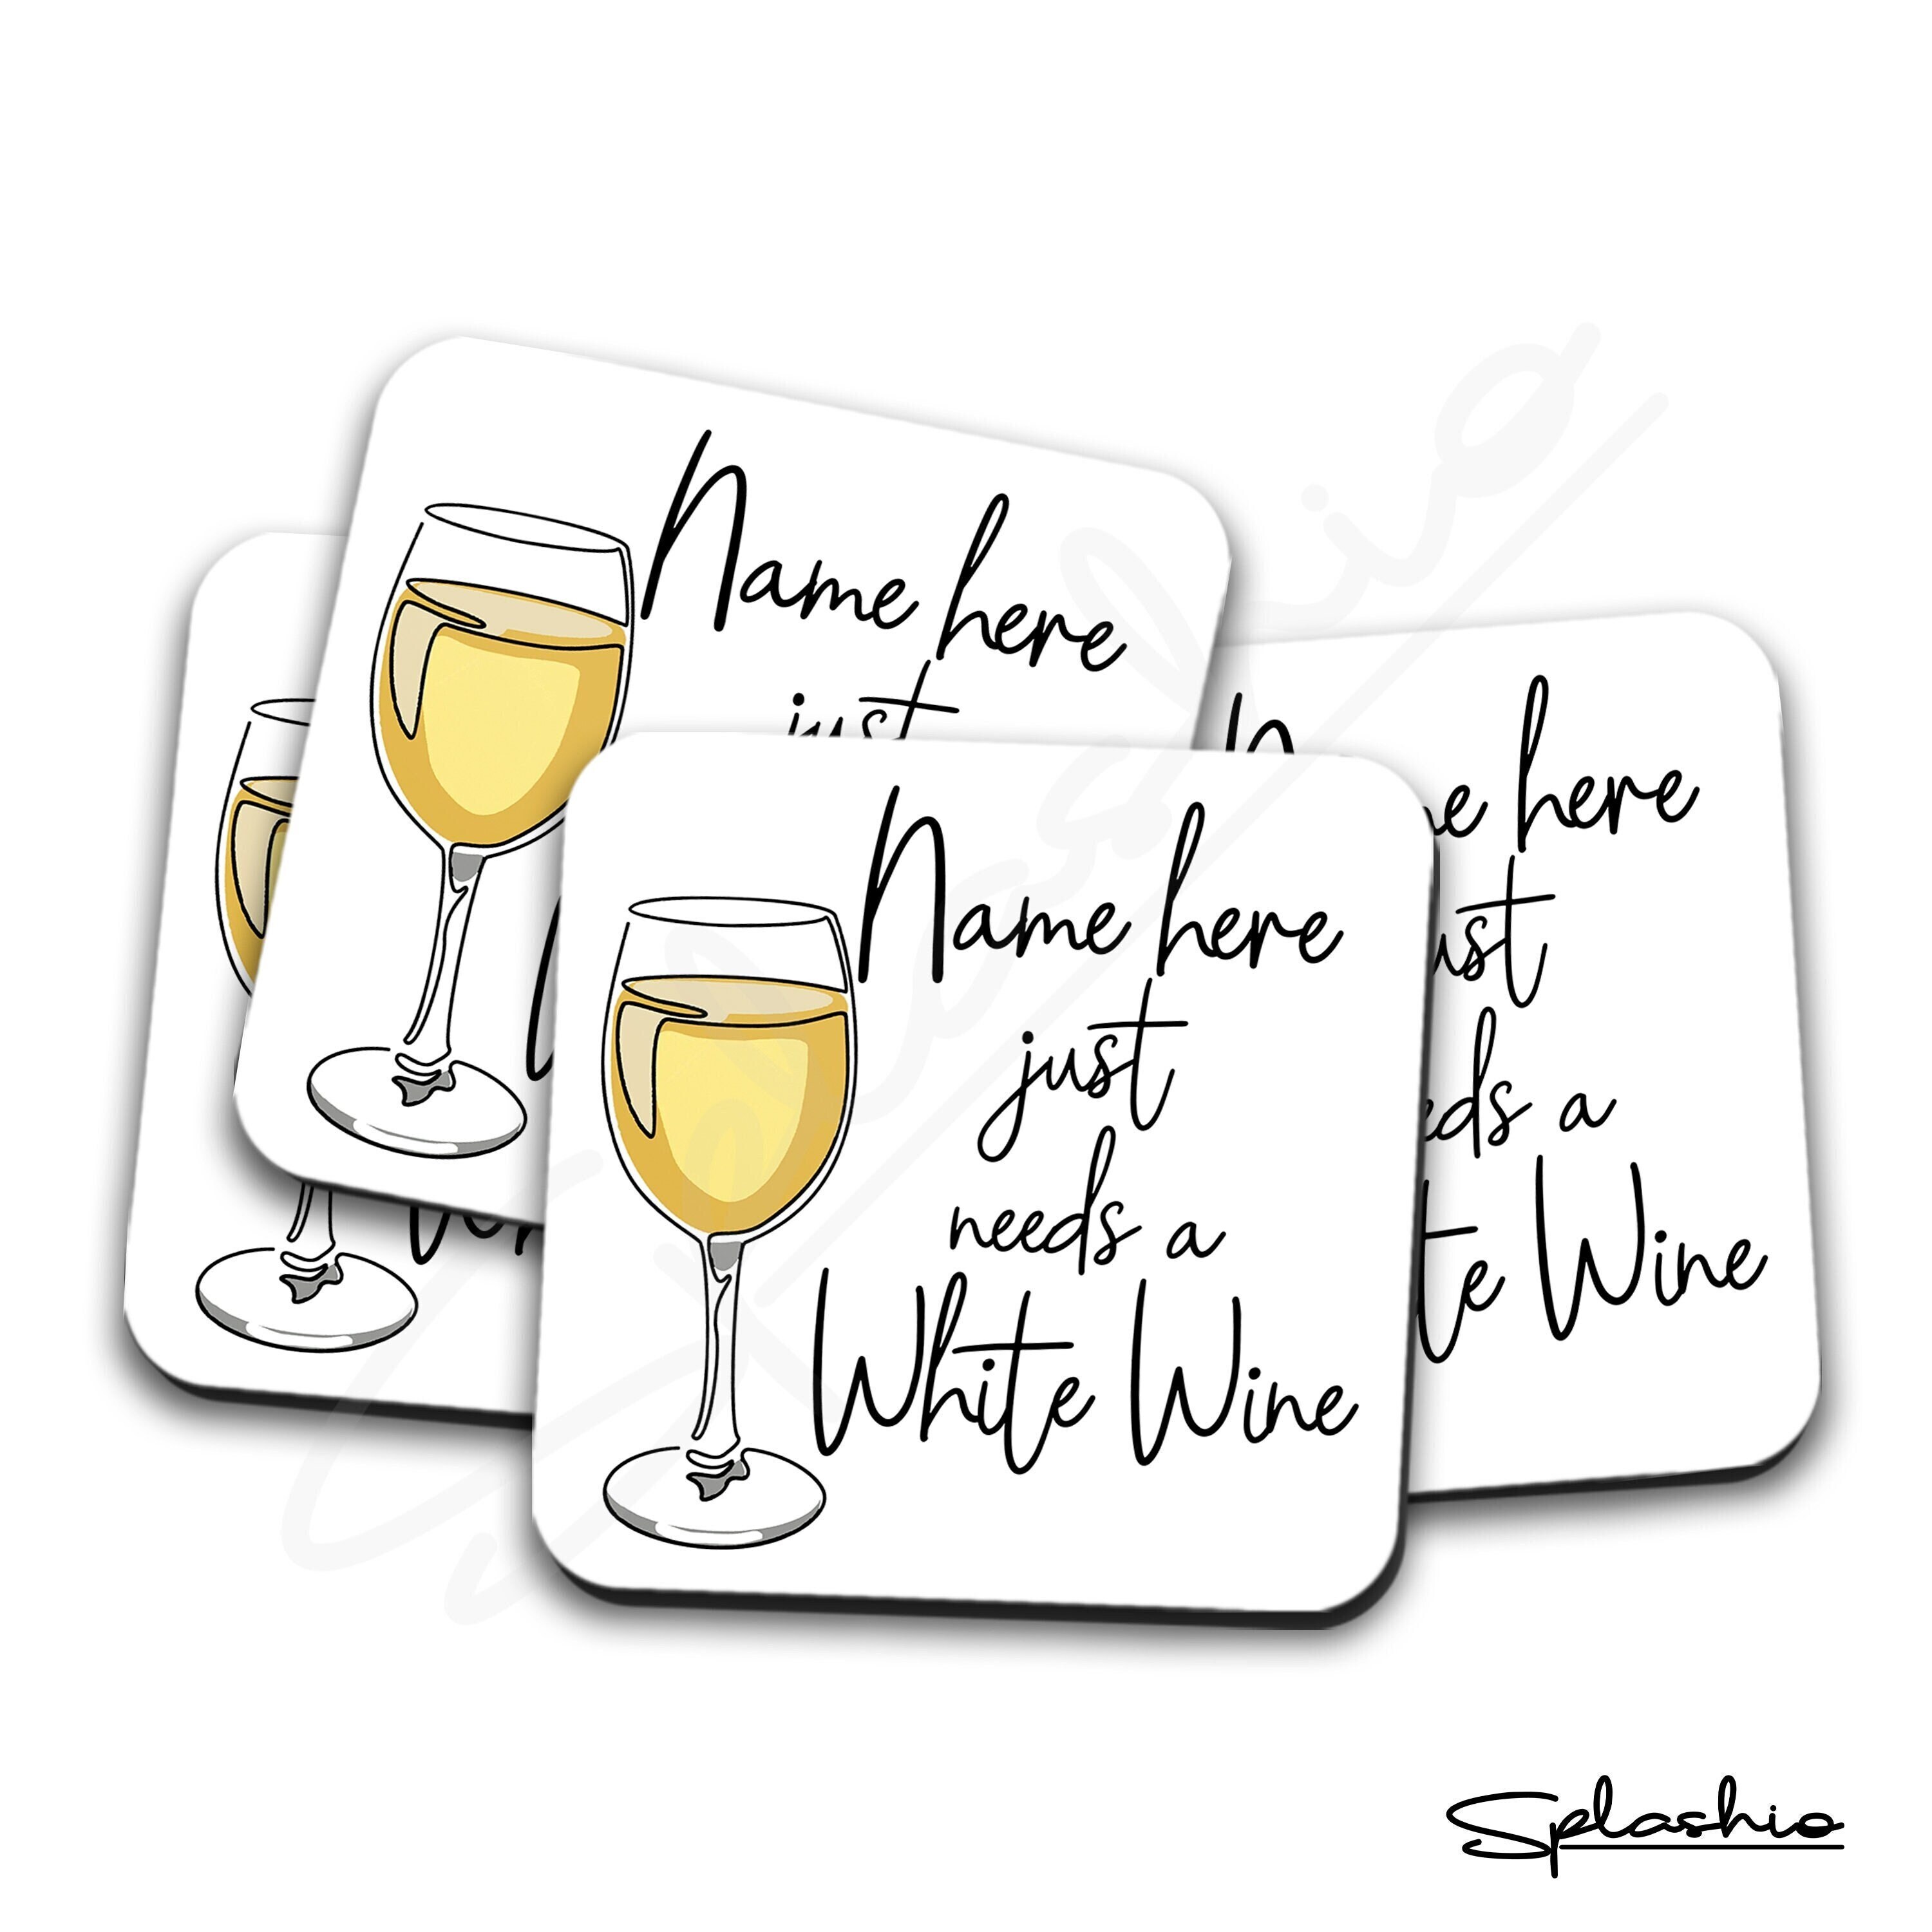 Name here
just
Name here
just
needs a
White Wine
here
needs a
Wine
Splashio
Splashio